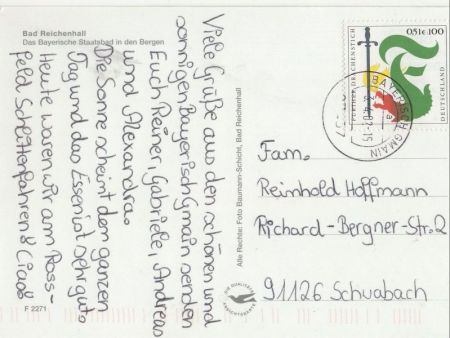 Bad Reichenhall
Das Bayerische Staatsbad in den Bergen
Viele Grüße aus den schönen und
sonnigen Bayerisch Gmain senden
Euch Reiner, Gabriele, Andreas
und Alexandra.
Die Sonne scheint dem ganzen
Tag und das Essen ist sehr gut.
Heute waren wir am Ross-
feld Schlittenfahren &
F 2271
Alle Rechte: Foto Baumann-Schicht, Bad Reichenhall
0,51€ 100
FURTHER DRACHENSTICH
DEUTSCHLAND
BAYERISCH GMAIN
Fam.
Reinhold Hoffmann
Richard-Bergner-Str. 2
91126 Schwabach